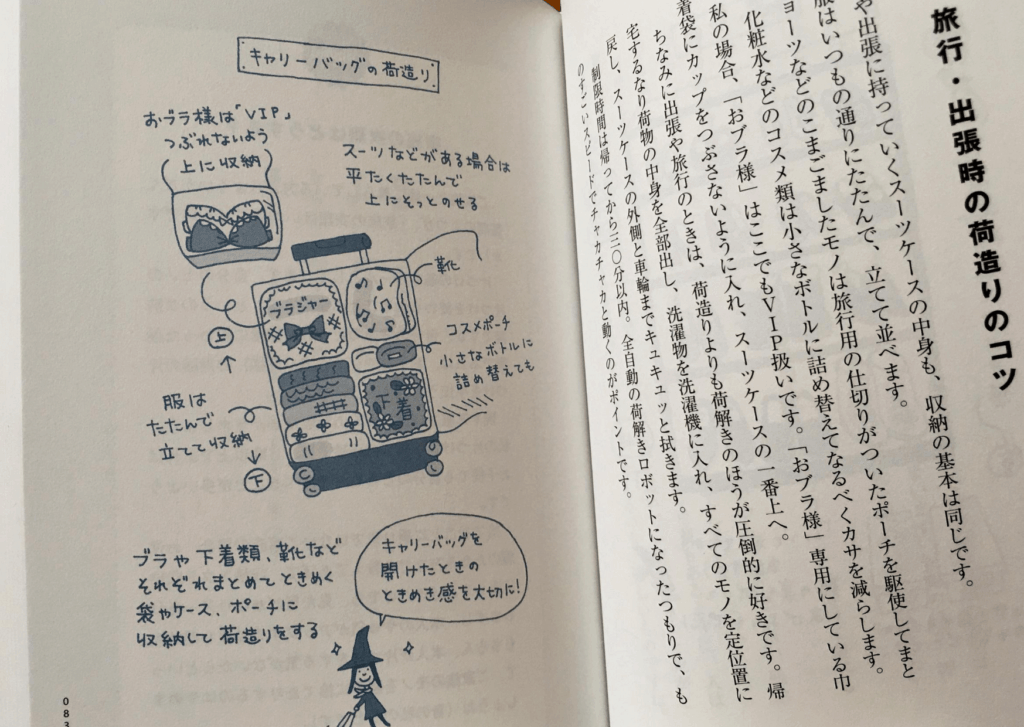 旅行・出張時の荷造りのコツ
や出張に持っていくスーツケースの中身も、収納の基本は同じです。
服はいつもの通りにたたんで、立てて並べます。
ョーツなどのこまごましたモノは旅行用の仕切りがついたポーチを駆使してまと
化粧水などのコスメ類は小さなボトルに詰め替えてなるべくカサを減らします。
私の場合、「おブラ様」はここでもVIP扱いです。「おブラ様」専用にしている巾
着袋にカップをつぶさないように入れ、スーツケースの一番上へ。
ちなみに出張や旅行のときは、荷造りよりも荷解きのほうが圧倒的に好きです。帰
宅するなり荷物の中身を全部出し、洗濯物を洗濯機に入れ、すべてのモノを定位置に
戻し、スーツケースの外側と車輪までキュキュッと拭きます。
制限時間は帰ってから三〇分以内。全自動の荷解きロボットになったつもりで、も
のすごいスピードでチャカチャカと動くのがポイントです。
キャリーバッグの荷造り
おブラ様は「VIP」
つぶれないよう
上に収納
スーツなどがある場合は
平たくたたんで
上にそっとのせる
靴
ブラジャー
上
コスメポーチ
小さなボトルに
詰め替えても
下着
服は
たたんで
立てて収納
下
ブラや下着類、靴など
それぞれまとめてときめく
袋やケース、ポーチに
収納して荷造りをする
キャリーバッグを
開けたときの
ときめき感を大切に!
083